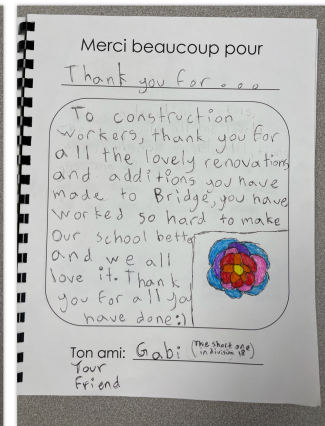 Merci beaucoup pour
Thank you for...
To construction
workers, thank you for
all the lovely renovations
and additions you have
made to Bridge, you have
worked so hard to make
our school better
and we all
love it. Thank
you for all you
have done:)
Ton ami: Gabi (The short one in division 18)
Your
Friend